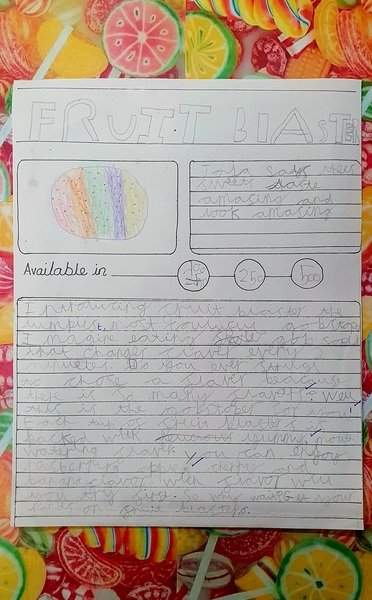 FRUIT BlASTER
Tafa says these
sweets taste
amazing and
look amazing
Available in
100 250 500
Introducing fruit blaster the
most coulourful gobstop
Imagine eating gobstopper
that changes flaver every
minutes Do you ever
to chose a flaver because
there is so many flavers? Well
this is the gobstoper for you!
Each of fruit blasters is
packed with yummy mouth
watering flaver. You can enjoy
rasberry, apple, cherry and
banana flavor. Wich flavor will
you try first. So why wait? Get your
hands on fruit blasters.